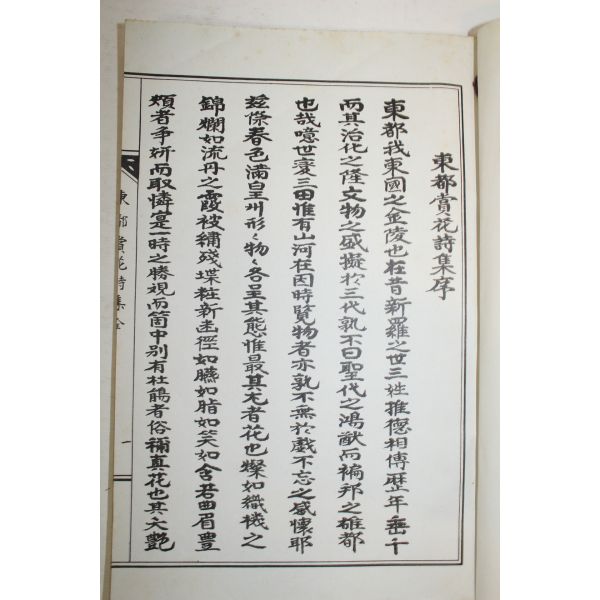 東都賞花詩集序
東都我東國之金陵也在昔新羅之世三姓推德相傳歷年垂千
而其治化之隆文物之盛擬於三代孰不曰聖代之鴻猷而褊邦之雄都
也哉噫世變三田惟有山河在因時覽物者亦孰不無於戲不忘之感懷耶
傑春色滿皇州形形物物各呈其態惟最其尤者花也燦如織機之
錦爛如流丹之霞被繡殘堞粧新逕如臙如脂如笑如含若曲眉豊
頰者爭姸而取憐寔一時之勝覩而箇中別有杜鵑者俗稱眞花也其文艶
東都賞花詩集全
一